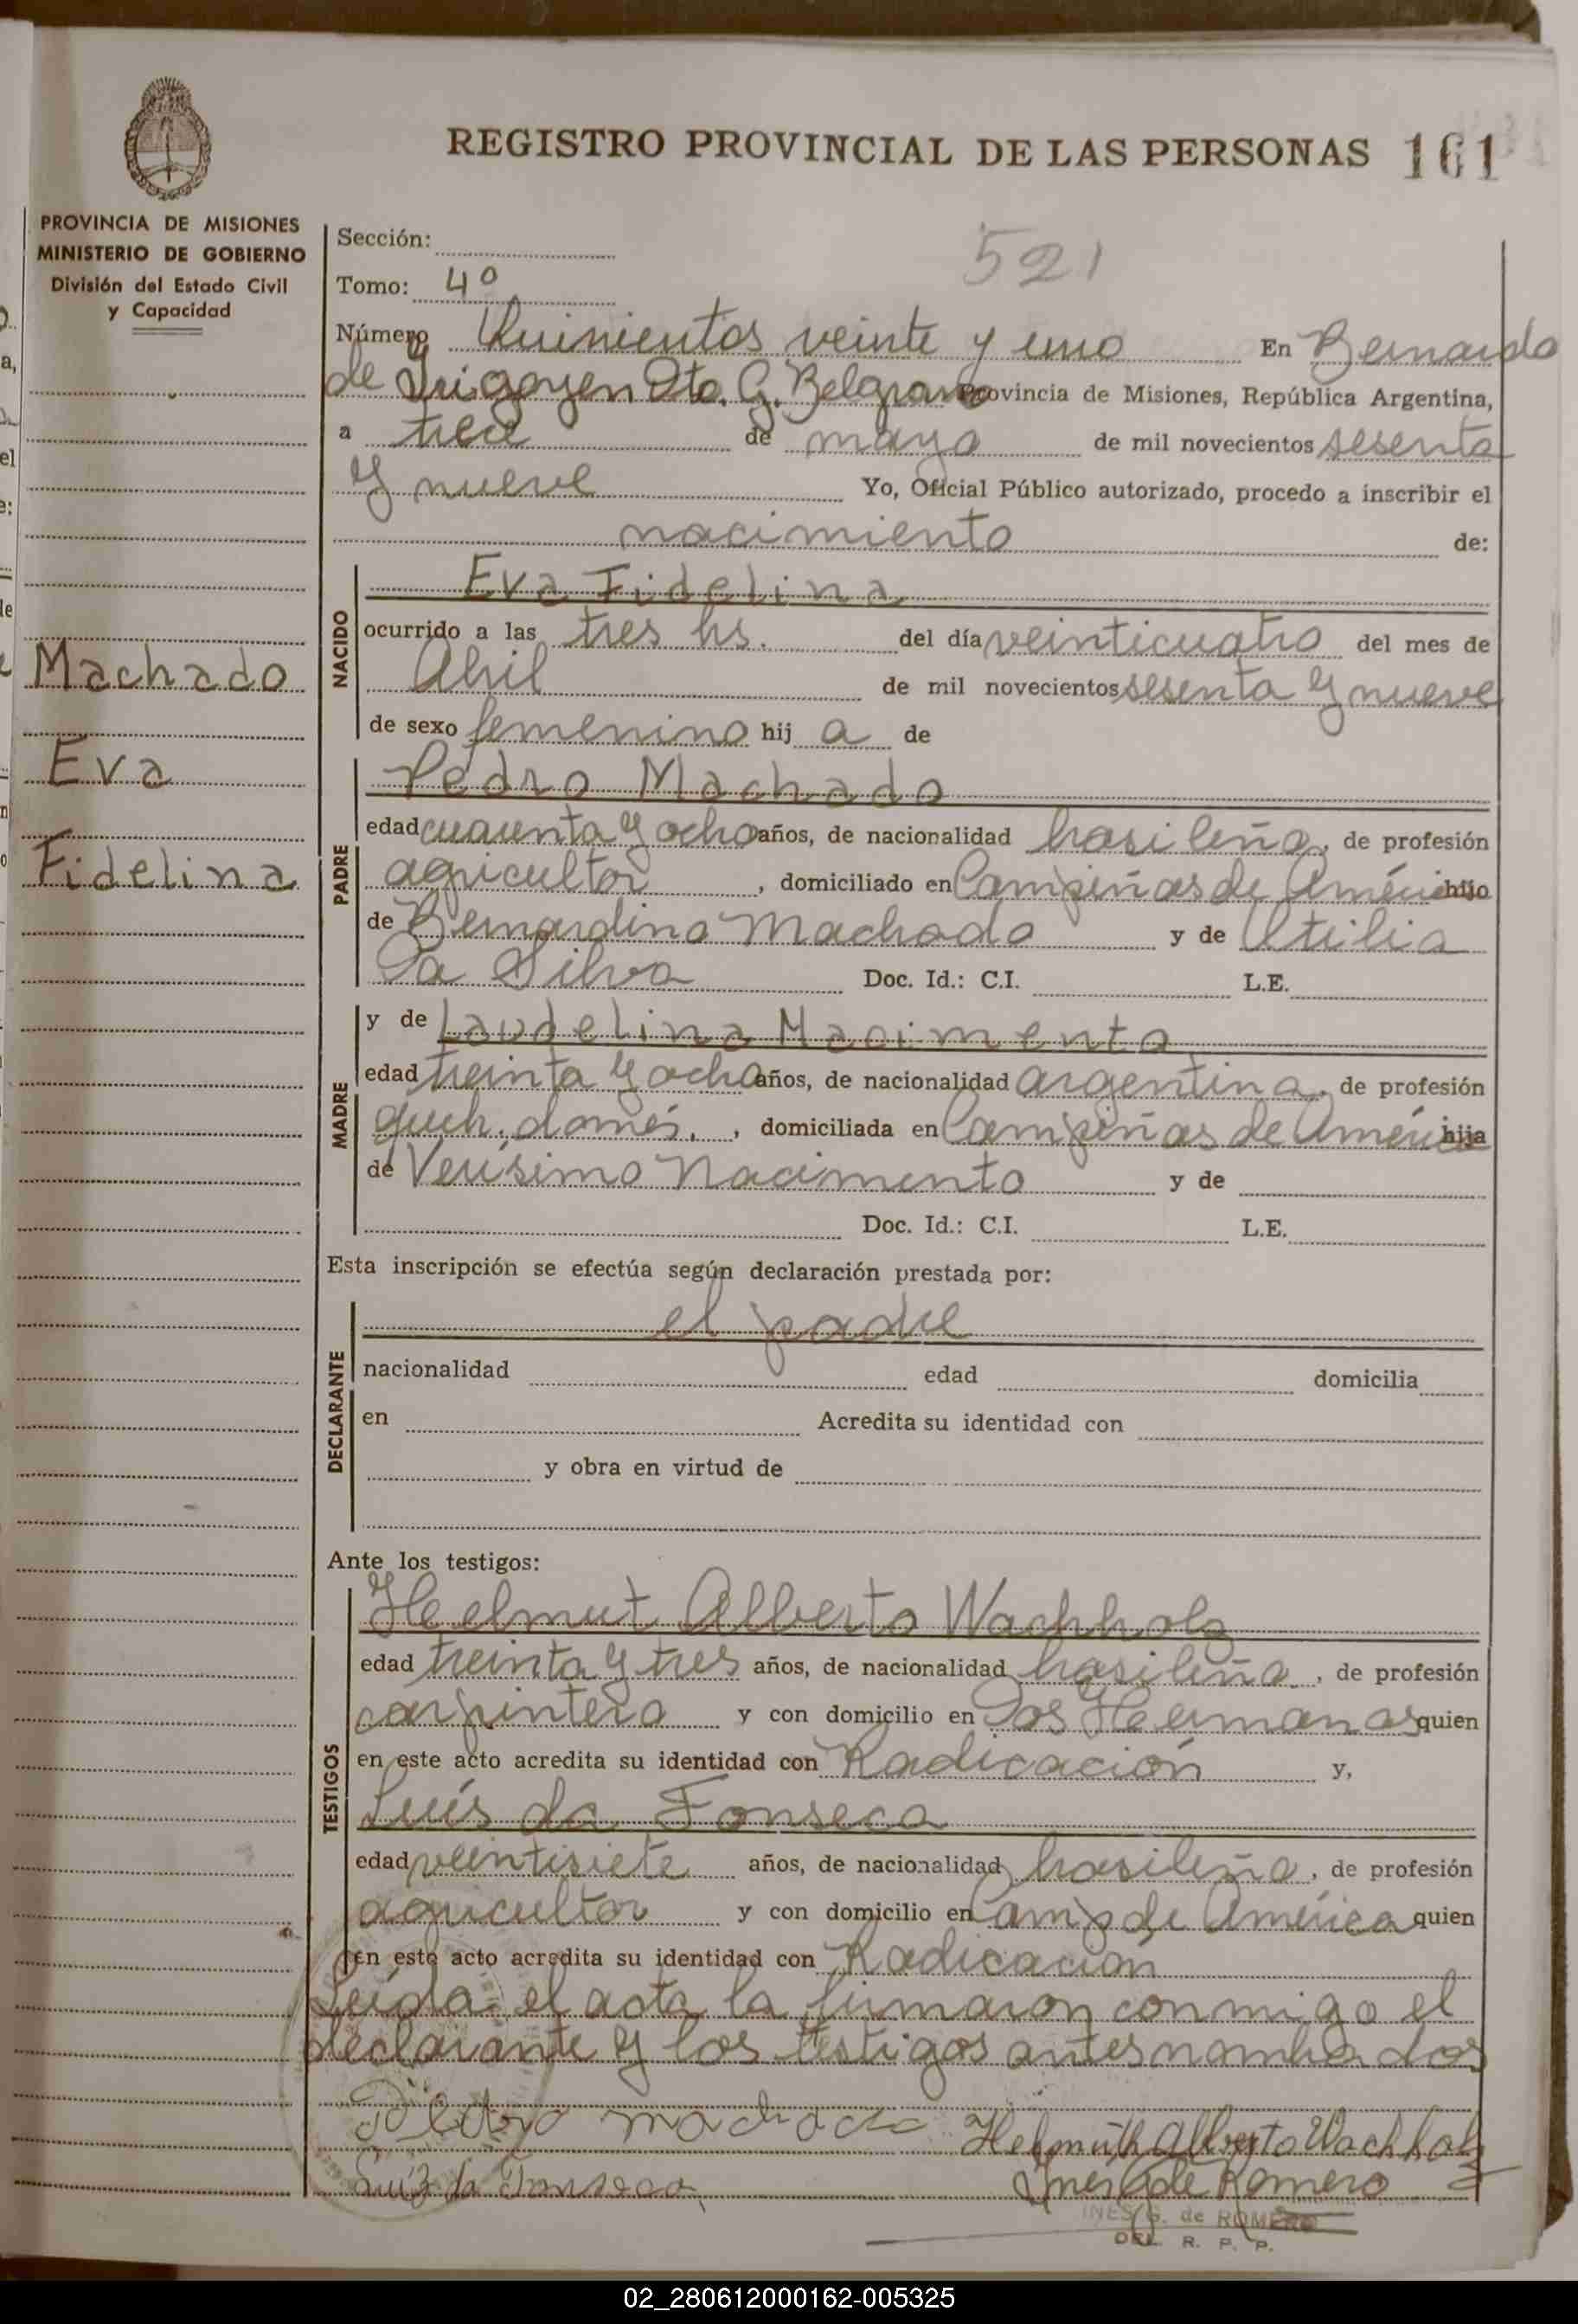 REGISTRO PROVINCIAL DE LAS PERSONAS 161
PROVINCIA DE MISIONES
MINISTERIO DE GOBIERNO
División del Estado Civil
y Capacidad
Sección:
521
Tomo: 4º
Número Quinientos veinte y uno En Bernardo
de Irigoyen Dto. G. Belgrano Provincia de Misiones, República Argentina,
a tres de mayo de mil novecientos sesenta
y nueve Yo, Oficial Público autorizado, procedo a inscribir el
nacimiento de:
Machado
Eva
Fidelina
NACIDO
Eva Fidelina
ocurrido a las tres hs. del día veinticuatro del mes de
Abril de mil novecientos sesenta y nueve
de sexo femenino hij a de
PADRE
Pedro Machado
edad cuarenta y ocho años, de nacionalidad brasileña, de profesión
agricultor, domiciliado en Campiñas de América hijo
de Bernardino Machado y de
Da Silva Doc. Id.: C.I. L.E.
MADRE
y de Laudelina Nacimento
edad treinta y ocho años, de nacionalidad argentina, de profesión
queh. domés., domiciliada en Campiñas de América hija
de Verísimo Nacimento y de
Doc. Id.: C.I. L.E.
Esta inscripción se efectúa según declaración prestada por:
DECLARANTE
el padre
nacionalidad edad domicilia
en Acredita su identidad con
y obra en virtud de
Ante los testigos:
TESTIGOS
Helmut Alberto Wachholz
edad treinta y tres años, de nacionalidad brasileña, de profesión
carpintero y con domicilio en Dos Hermanas quien
en este acto acredita su identidad con Radicación y,
Luís da Fonseca
edad veintisiete años, de nacionalidad brasileña, de profesión
agricultor y con domicilio en Camp de América quien
en este acto acredita su identidad con Radicación
Leída el acta la firmaron conmigo el
declarante y los testigos antes nombrados
Pedro machado Helmuth Alberto Wachholz
Luiz da Fonseca Ines G de Romero
INES G. de ROMERO
DEL. R. P. P.
02_280612000162-005325